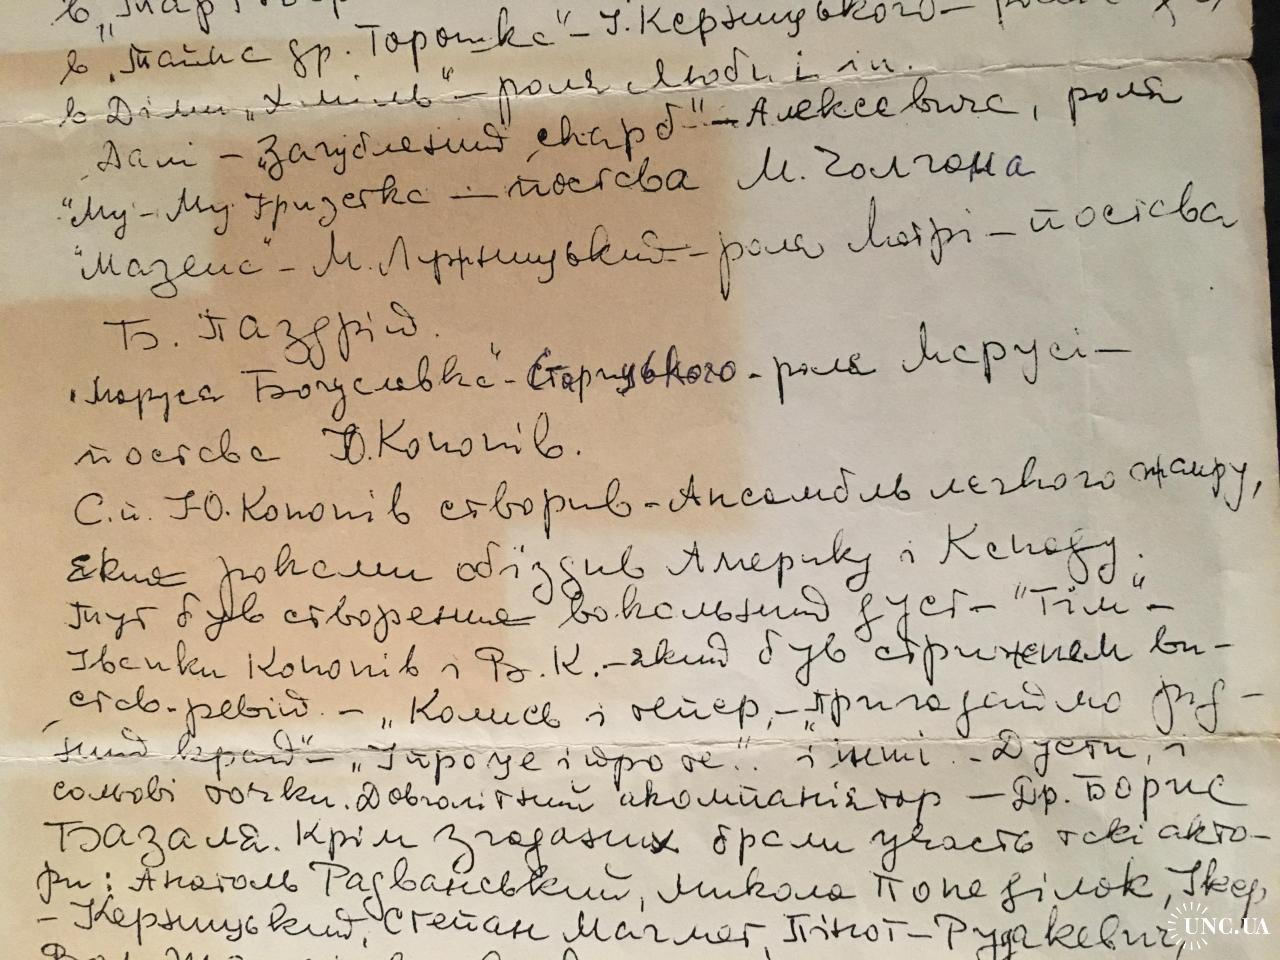 в "Тайна др. Горошка" – І. Керницького –
в Діми "Хміль" – роля Люби і ін.
Далі – "Загублений скарб" – Алексевича, роля
"Му-Му Грізетка – постава М. Чолгана
"Мазепа" – М. Лужницький – роля Мотрі – постава
Б. Паздрій.
"Маруся Богуславка" – Старицького – роля Марусі –
постава Ю. Кононів.
С.п. Ю. Кононів створив – Ансамбль легкого жанру,
який роками об'їздив Америку і Канаду.
Тут був створений вокальний дует – "Тім" –
Іванки Кононів і В. К. – який був стрижнем ви-
став-ревій – "Колись і тепер, – "Пригадаймо рід-
ний край" – "І про це і про те".. і інші – Дуети, і
сольові точки. Довголітний акомпаніятор – Др. Борис
Базаля. Крім згоданих брали участь такі акто-
ри: Анатоль Радванський, Микола Понеділок, Ікер
– Керницький, Степан Магмет, Пінот-Рудакевич,
UNC.UA